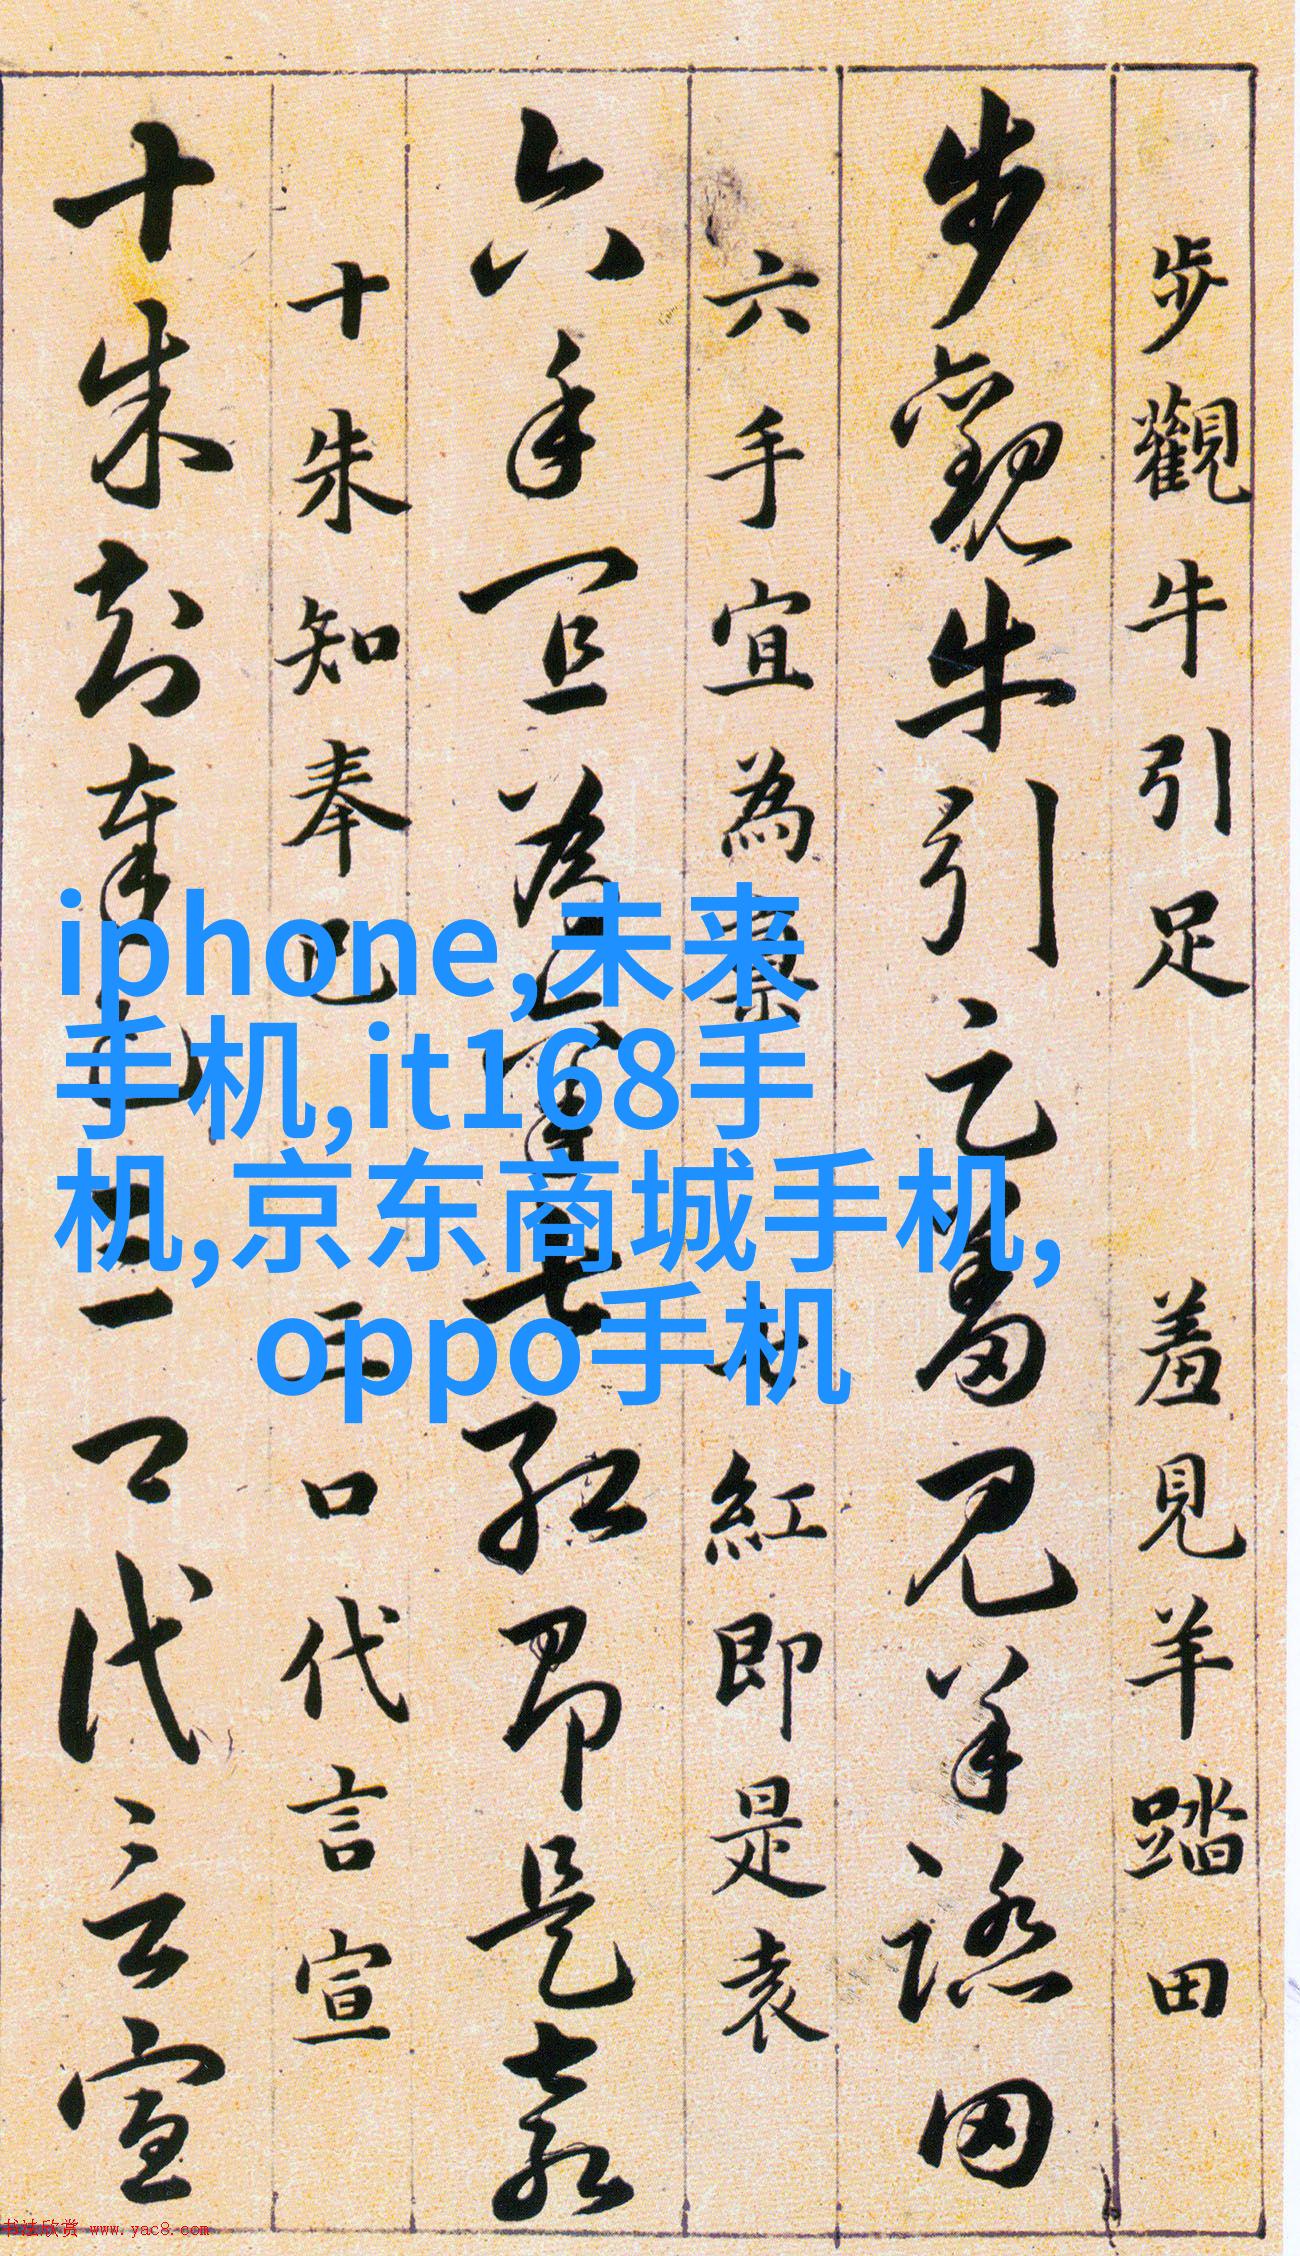 步觀牛引足 羞見羊踏田
步觀牛引足羞見羊踏田
六手宜為稟 七紅即是袁
六手宜為稟七紅即是袁
十朱知奉已 三口代言宣
十朱知奉已三口代言宣
iphone,未来
手机,it168手
机,京东商城手机,
oppo手机
书法欣赏 www.yac8.com